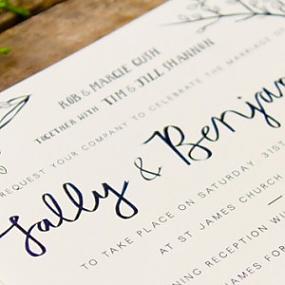 ROB & MARGIE GUSH
TOGETHER WITH TIM & JILL SHANNON
REQUEST YOUR COMPANY TO CELEBRATE THE MARRIAGE OF
Sally & Benja
TO TAKE PLACE ON SATURDAY, 31ST
AT ST JAMES CHURCH
EVENING RECEPTION WIL
JAMES FOR